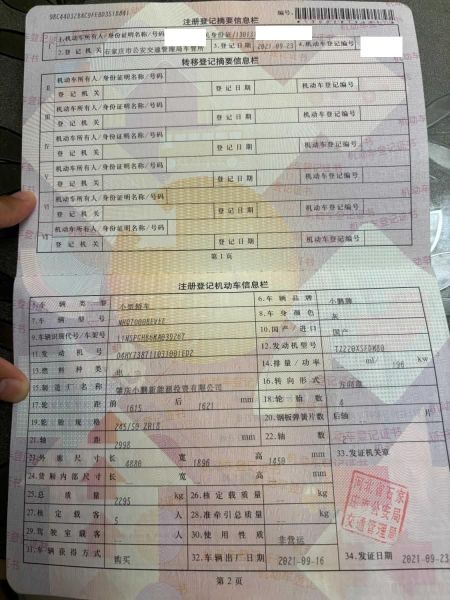 注册登记摘要信息栏
编号:
1.机动车所有人/身份证明名称/号码
2.登记机关 石家庄市公安交通管理局车管所 3.登记日期 2021-09-23 4.机动车登记编号
转移登记摘要信息栏
II 机动车所有人/身份证明名称/号码
登记机关 登记日期 机动车登记编号
III 机动车所有人/身份证明名称/号码
登记机关 登记日期 机动车登记编号
IV 机动车所有人/身份证明名称/号码
登记机关 登记日期 机动车登记编号
V 机动车所有人/身份证明名称/号码
登记机关 登记日期 机动车登记编号
VI 机动车所有人/身份证明名称/号码
登记机关 登记日期 机动车登记编号
VII 机动车所有人/身份证明名称/号码
登记机关 登记日期 机动车登记编号
第1页
注册登记机动车信息栏
5.车辆类型 小型轿车 6.车辆品牌 小鹏牌
7.车辆型号 8.车身颜色 灰
9.车辆识别代号/车架号 10.国产/进口 国产
11.发动机号 12.发动机型号
13.燃料种类 电 14.排量/功率 ml/ 196 kw
15.制造厂名称 肇庆小鹏新能源投资有限公司 16.转向形式 方向盘
17.轮距 前 1615 后 1621 mm 18.轮胎数 4
19.轮胎规格 245/50 ZR18 20.钢板弹簧片数 后轴 片
21.轴距 2998 mm 22.轴数
23.外廓尺寸 长 4880 宽 1896 高 1450 mm 33.发证机关章
24.货厢内部尺寸 长 宽 高 mm
25.总质量 2295 kg 26.核定载质量 kg
27.核定载客 5 人 28.准牵引总质量 kg
29.驾驶室载客 人 30.使用性质 非营运
31.车辆获得方式 购买 32.车辆出厂日期 2021-09-16 34.发证日期 2021-09-23
河北省石家
庄市公安局
交通管理局
第2页